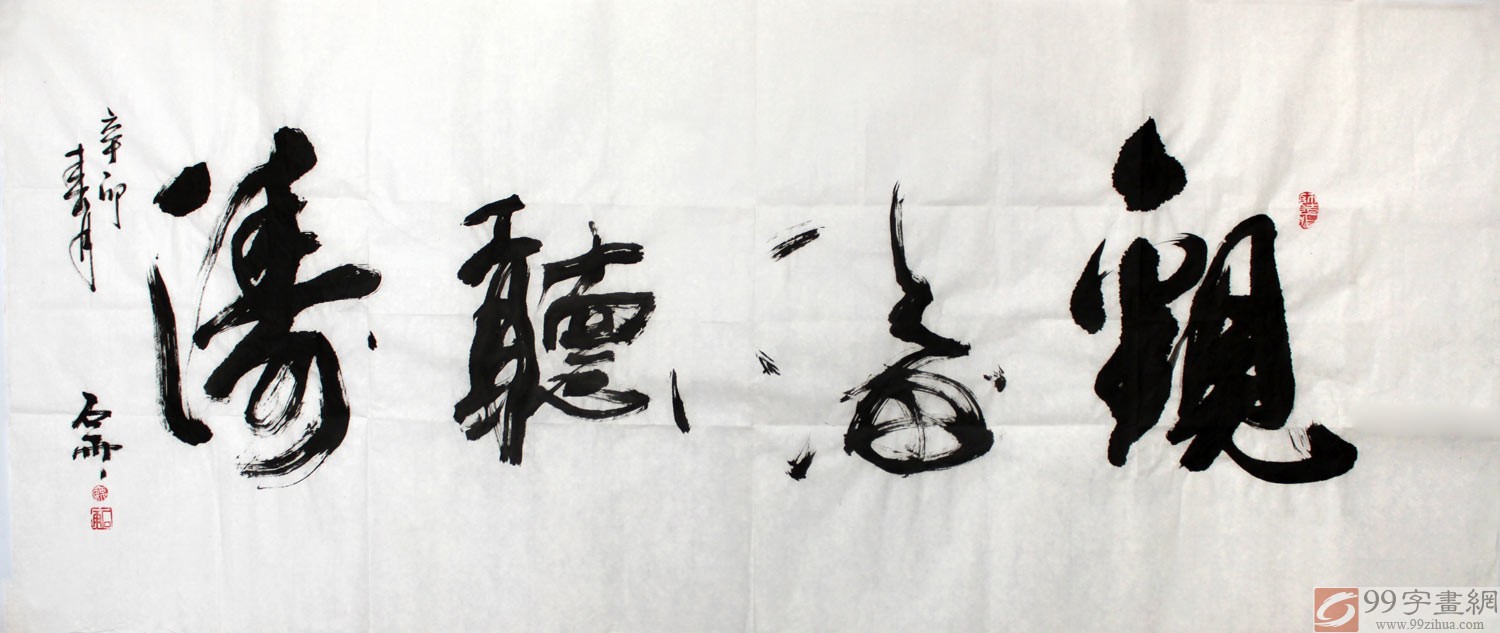 觀海聽濤
辛卯
春月
石雨
99字畫網
www.99zihua.com